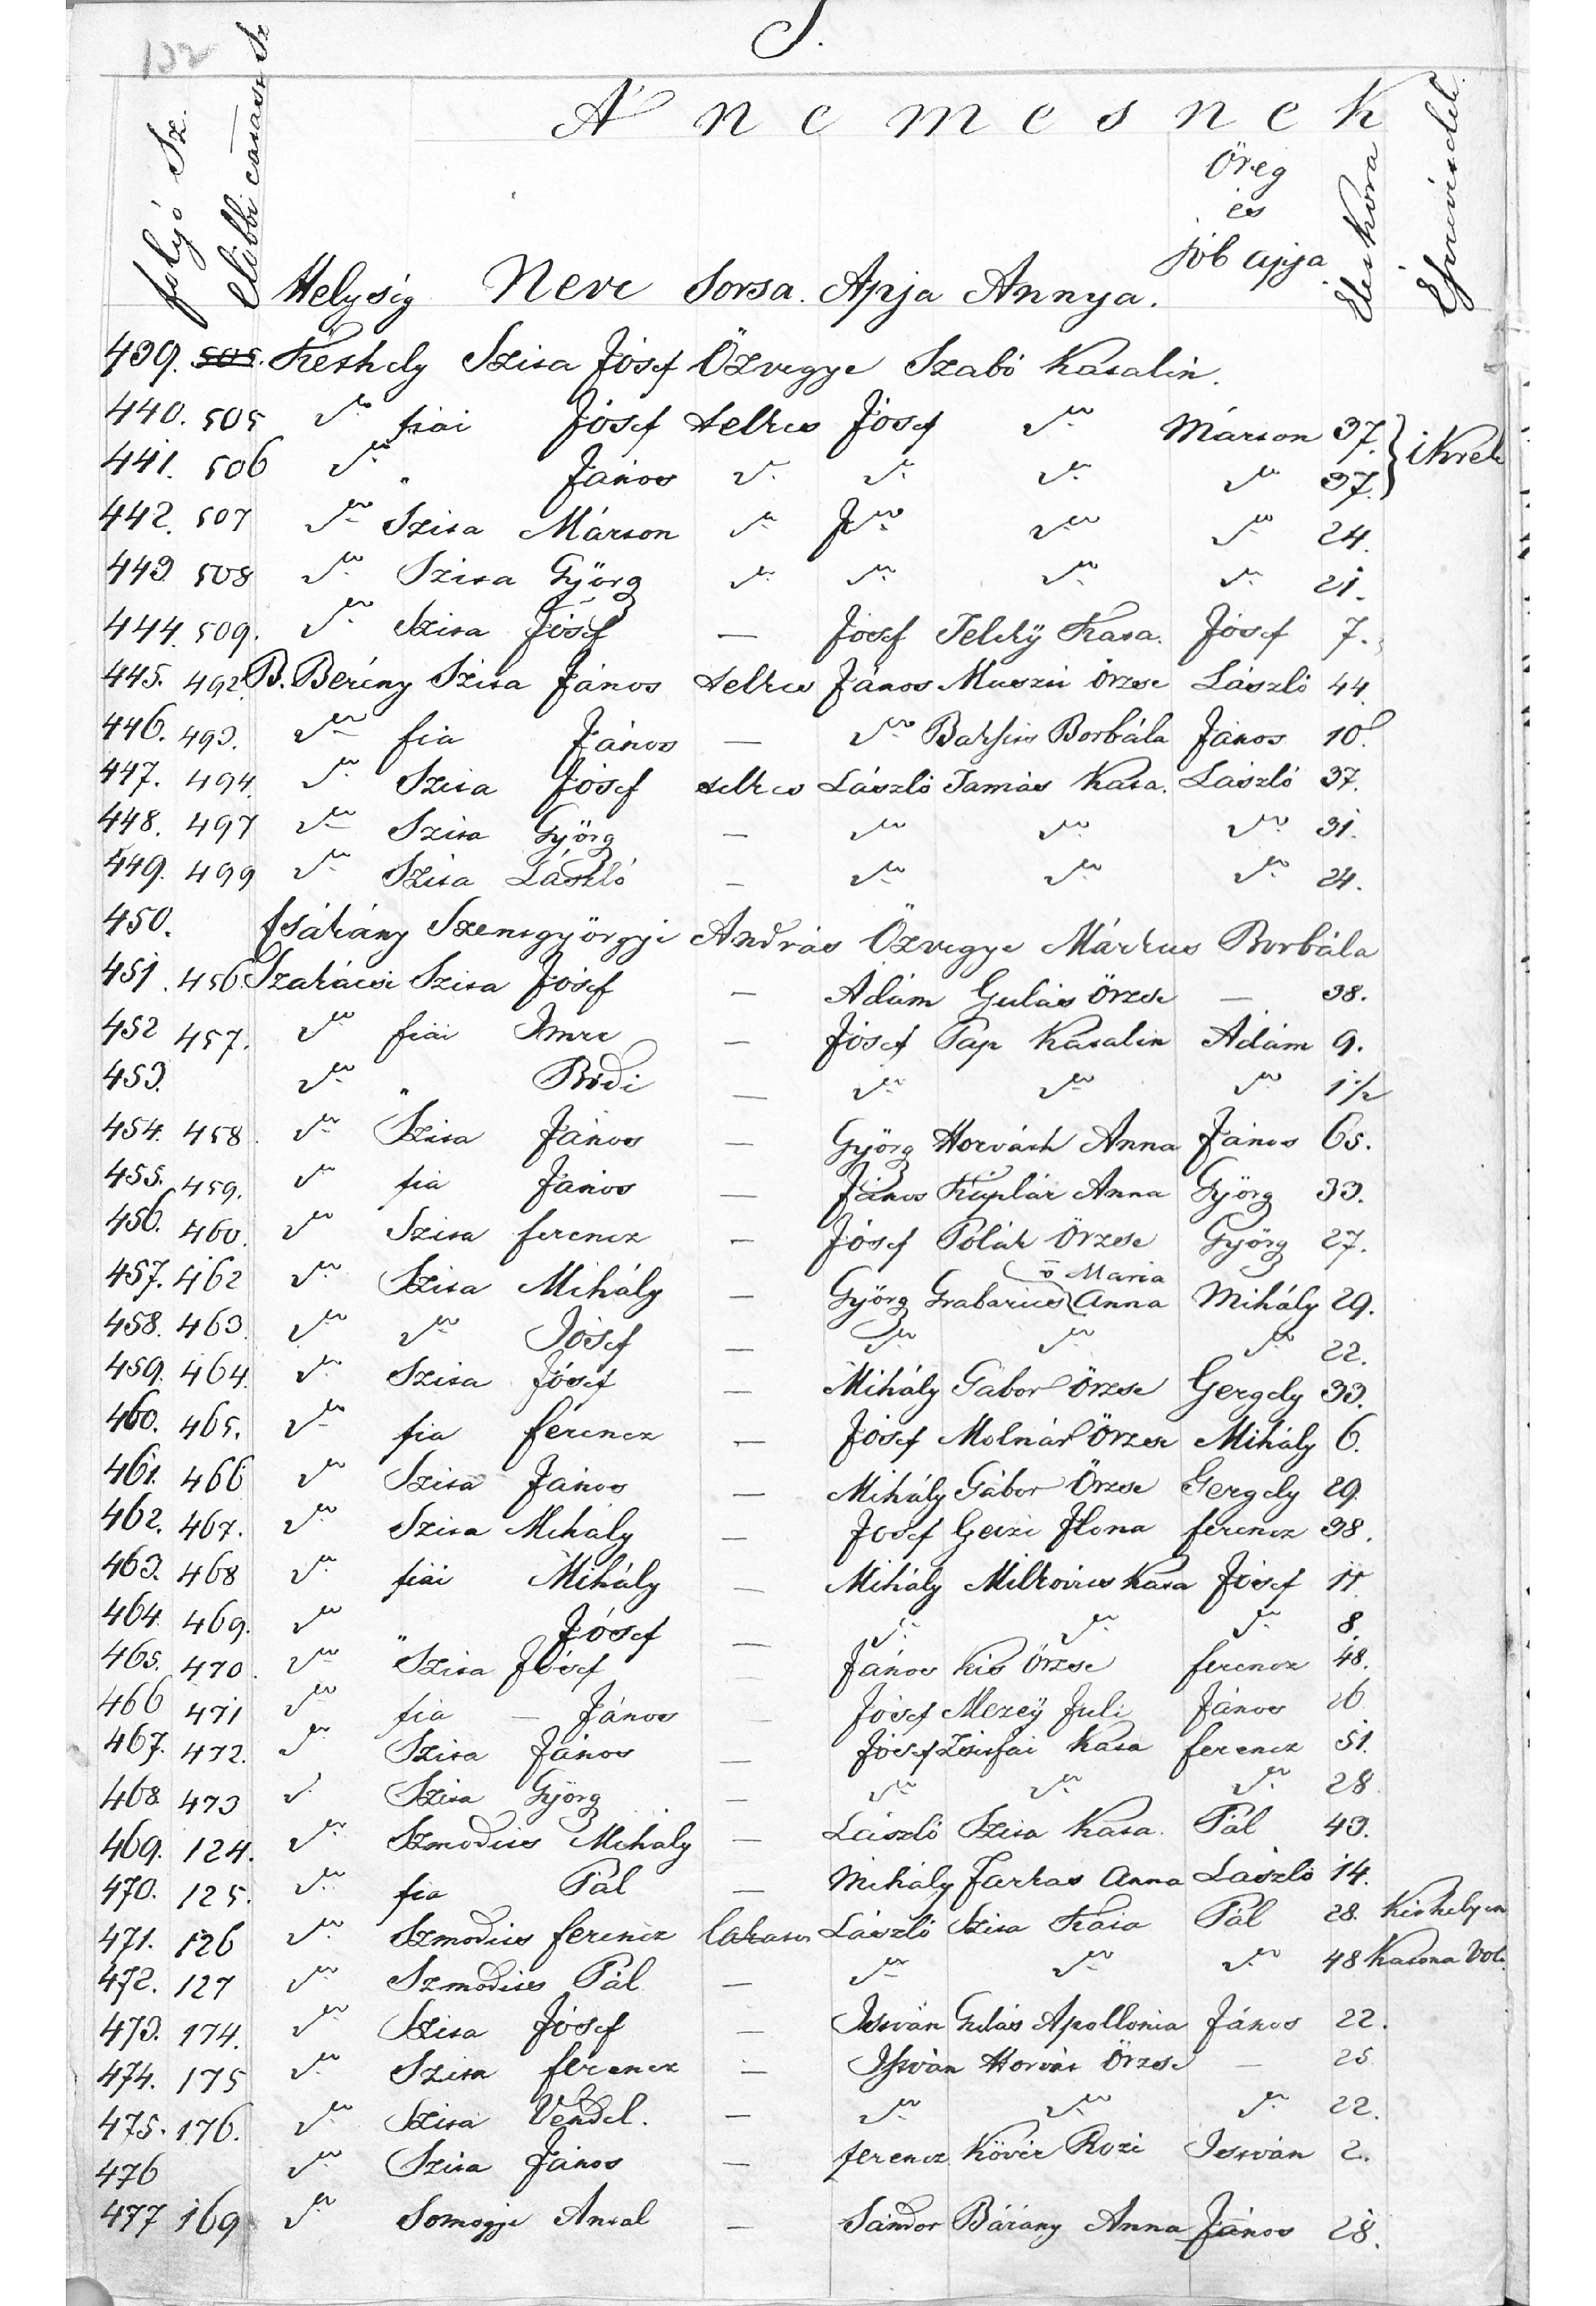 132
S.
A nemesnek
folyó Sz. Előbbi Helység Neve Sorsa. Apja Annya. Öreg és jób apja Élet Kora Észrevétel.
439. 505. Keszthely Szita Jósef Özvegye Szabó Katalin.
440. 505 do fiai Jósef telkes Jósef do Márton 37. } ikrek
441. 506 do " János do do do do 37.
442. 507 do Szita Márton do do do do 24.
443. 508 do Szita Györg do do do do 21.
444. 509. do Szita Jósef — Josef Teleky Kata. Jósef 7.
445. 492. B. Berény Szita János telkes János Örzse László 44.
446. 493. do fia János — do Borbála János 10.
447. 494. do Szita Jósef telkes László Tamás Kata. László 37.
448. 497 do Szita Györg — do do do 31.
449. 499 do Szita László — do do do 24.
450. Csákány Szentgyörgyi András Özvegye Márkus Borbála
451. 456. Szakácsi Szita Jósef — Ádám Gulás Örzse — 38.
452 457. do fiai Imre — Jósef Pap Katalin Ádám 9.
453. do " Bódi — do do do 1 1/2
454. 458. do Szita János — Györg Horváth Anna János 65.
455. 459. do fia János — János Káplár Anna Györg 33.
456. 460. do Szita ferencz — Jósef Polák Örzse Györg 27.
457. 462 do Szita Mihály — Györg Grabarics Anna v Maria Mihály 29.
458. 463. do do Jósef — do do do 22.
459. 464. do Szita Jósef — Mihály Gábor Örzse Gergely 33.
460. 465. do fia ferencz — Jósef Molnár Örzse Mihály 6.
461. 466 do Szita János — Mihály Gábor Örzse Gergely 29.
462. 467. do Szita Mihály — Josef Geizi Ilona ferencz 38.
463. 468 do fiai Mihály — Mihály Milkovics Kata Jósef 11.
464. 469. do " Jósef — do do do 8.
465. 470. do Szita Jósef — János Kis Örzse ferencz 48.
466 471 do fia — János — Jósef Mezey Juli János 26
467. 472. do Szita János — Jósef Kata ferencz 51.
468. 473 do Szita Györg — do do do 28
469. 124. do Szmodics Mihály — László Szita Kata. Pál 43.
470. 125. do fia Pál — Mihály Farkas Anna László 14.
471. 126 do Szmodics ferencz lakatos László Szita Kata Pál 28. Keszthelyen
472. 127 do Szmodics Pál — do do do 48 Katona Volt.
473. 174. do Szita Jósef — István Gulás Apollonia János 22.
474. 175 do Szita ferencz — István Horvát Örzse — 25.
475. 176. do Szita Vendel. — do do do 22.
476 do Szita János — ferencz Kövér Rozi István 2.
477 169 do Somogyi Antal — Sándor Bárány Anna János 28.